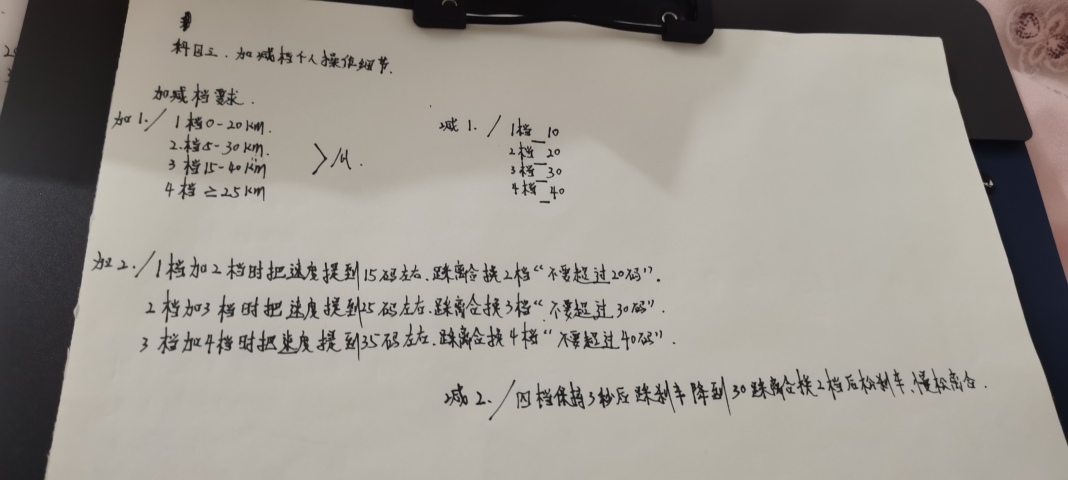 科目三、加减档个人操作细节.
加减档需求.
加1./ 1档0-20km.
2.档5-30km.
3档15-40km
4档≥25km
>/H.
减1./ 1档_10
2档_20
3档_30
4档_40
加2./1档加2档时把速度提到15码左右.踩离合换2档“不要超过20码”.
2档加3档时把速度提到25码左右.踩离合换3档“不要超过30码”.
3档加4档时把速度提到35码左右.踩离合换4档“不要超过40码”.
减2./四档保持3秒后踩刹车降到30踩离合换2档后松刹车.慢松离合.